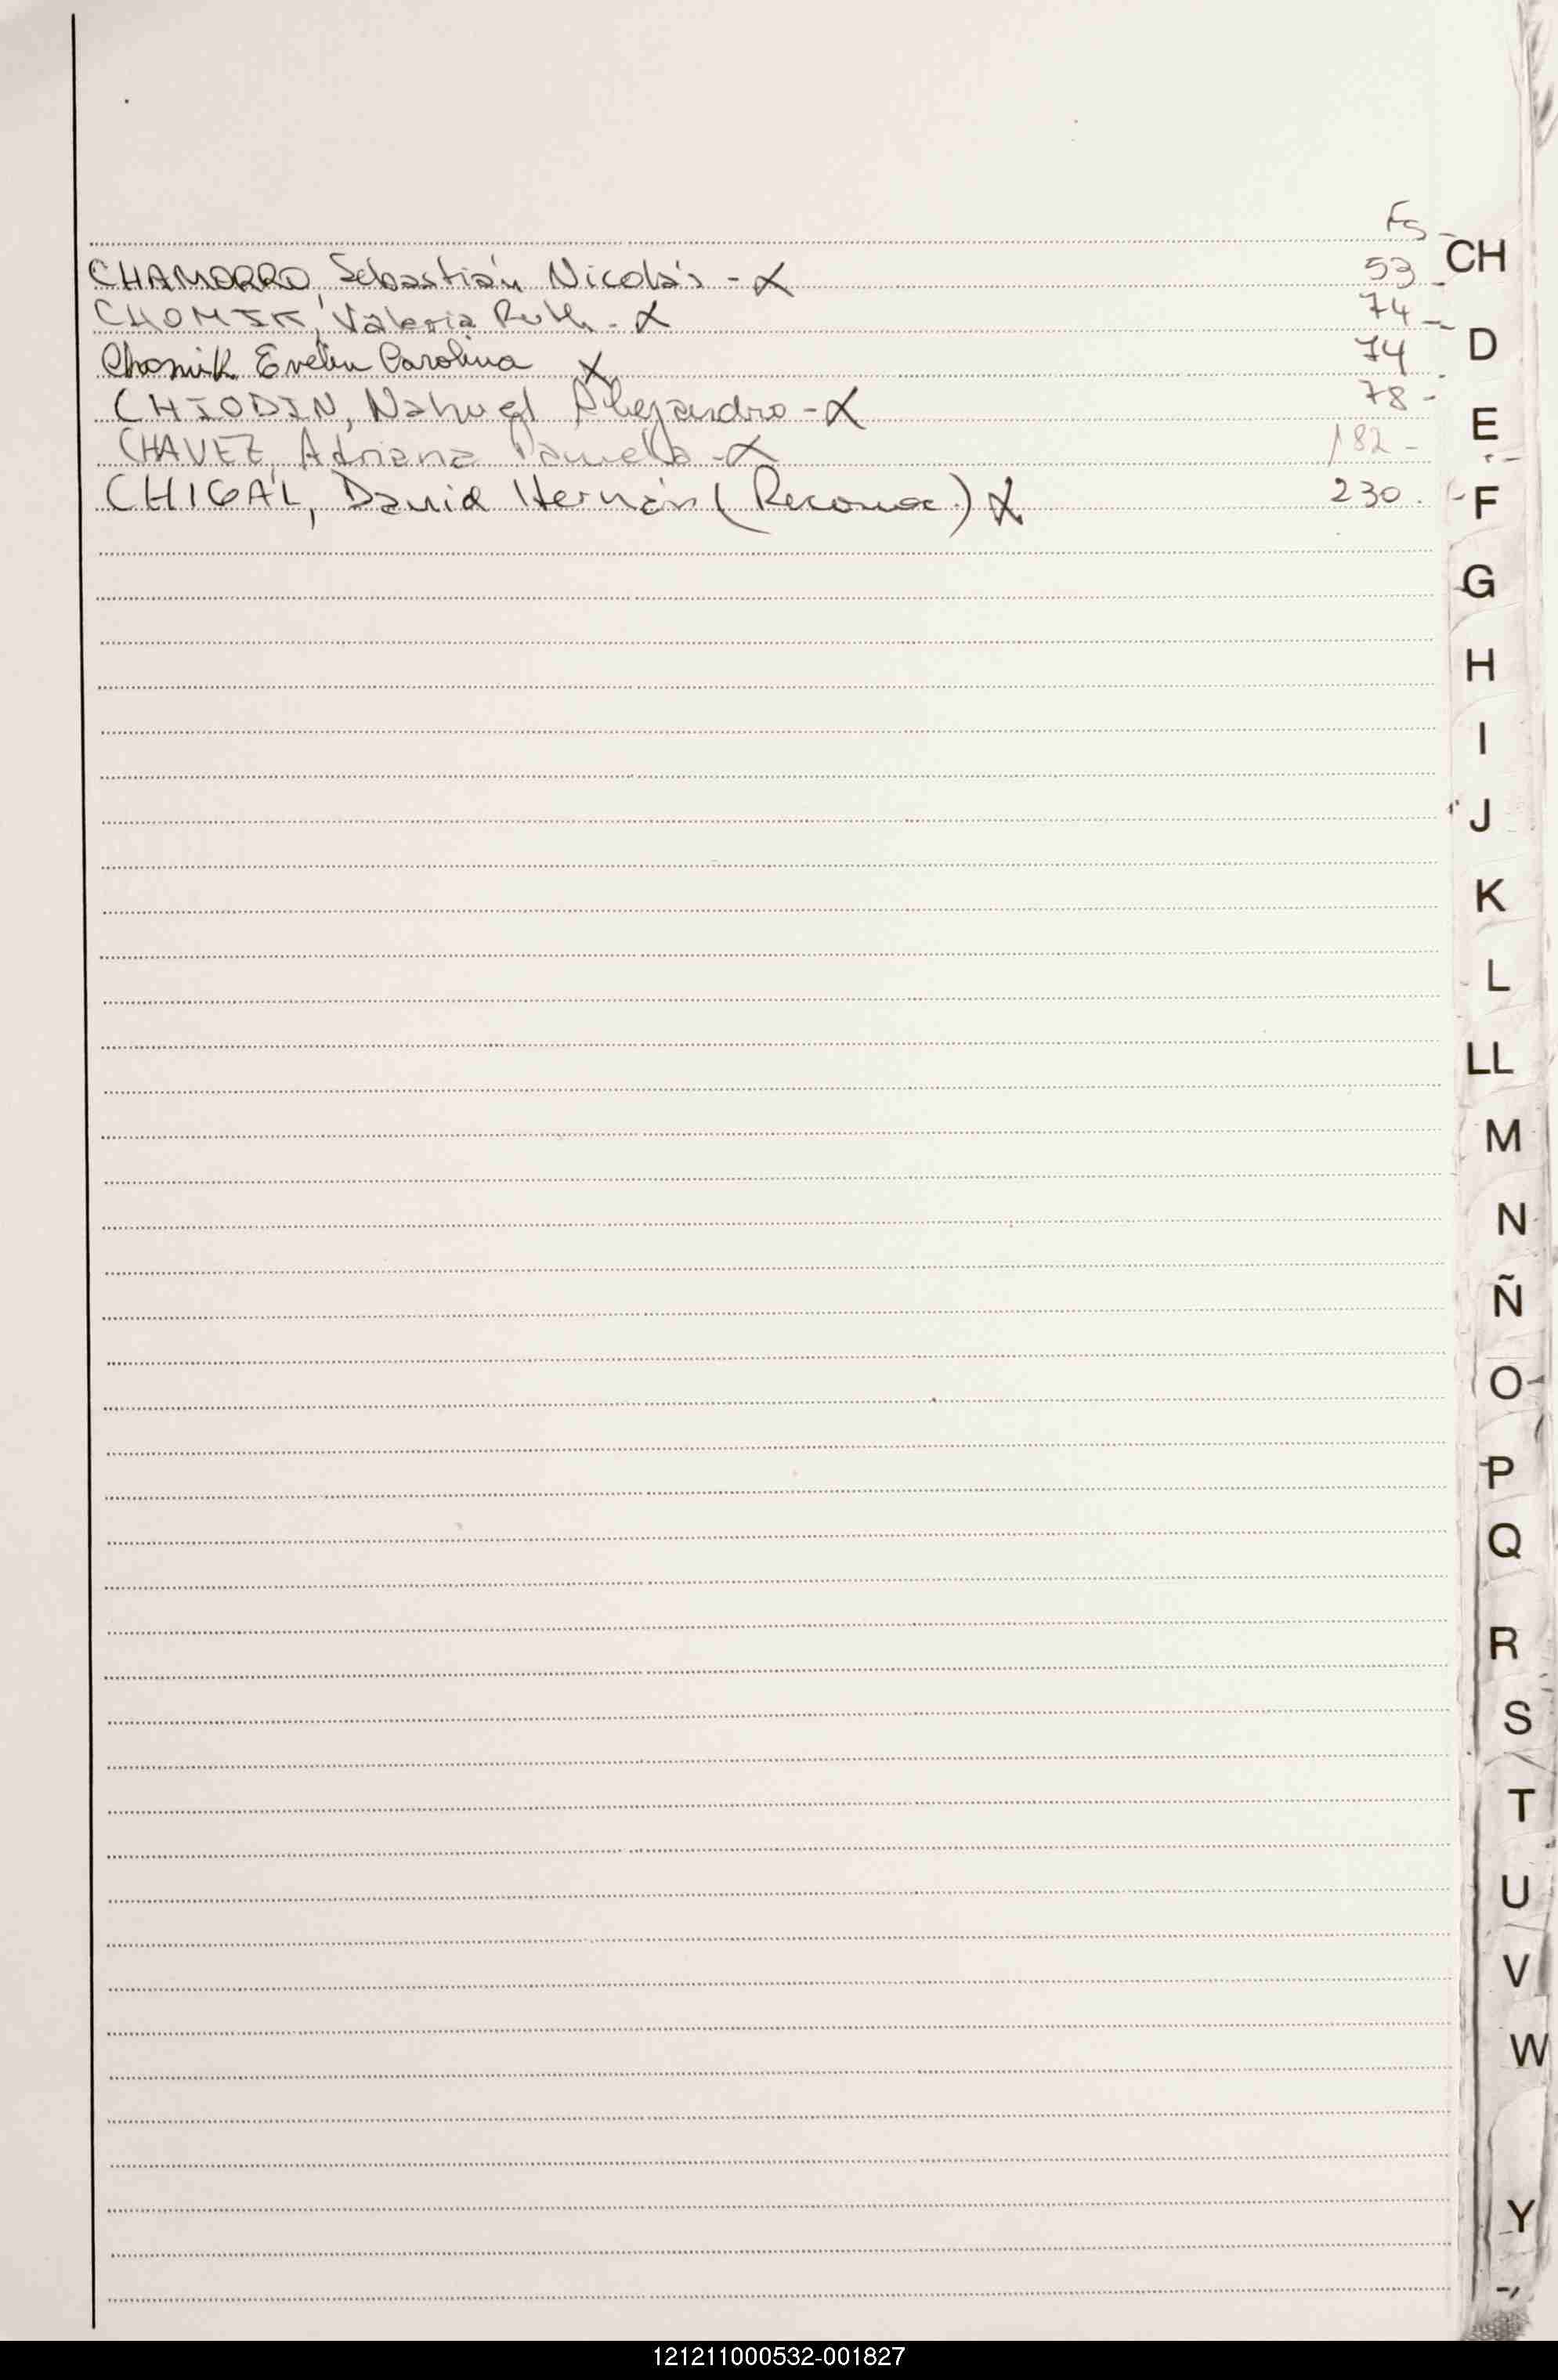 Fs
CHAMORRO, Sebastián Nicolás - X 53
CHOMIK, Valeria Ruth - X 74
Chomik Evelin Carolina X 74
CHIODIN, Nahuel Alejandro - X 78
CHAVEZ, Adriana Pamela - X 182
CHIGAL, David Hernán (Reconoc.) X 230
CH
D
E
F
G
H
I
J
K
L
LL
M
N
Ñ
O
P
Q
R
S
T
U
V
W
Y
121211000532-001827